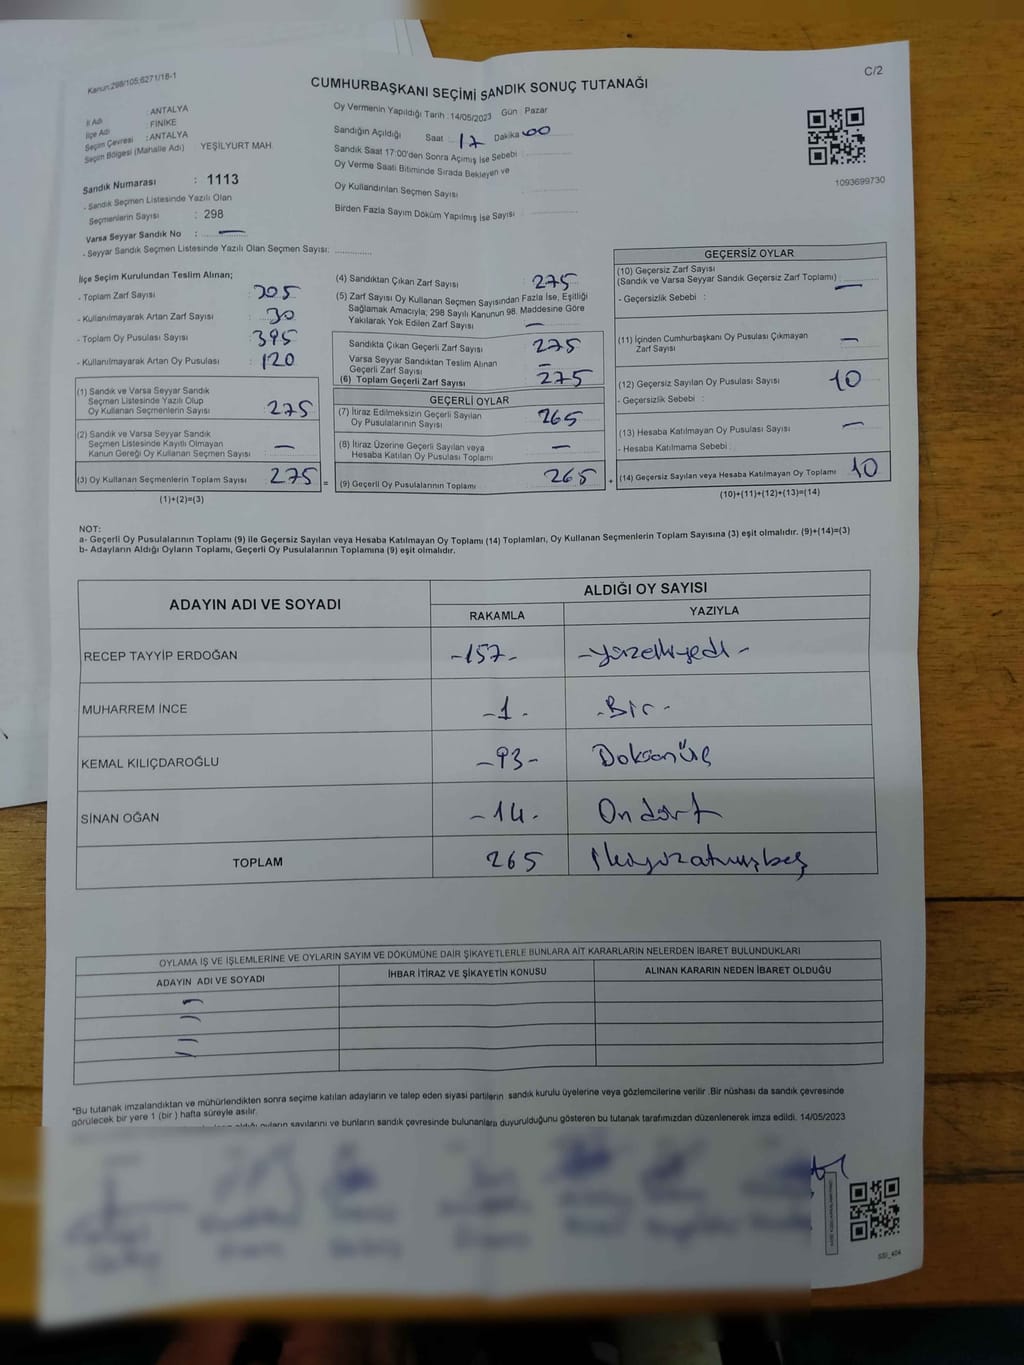 Kanun:298/105;6271/18-1
C/2
CUMHURBAŞKANI SEÇİMİ SANDIK SONUÇ TUTANAĞI
İl Adı : ANTALYA
İlçe Adı : FİNİKE
Seçim Çevresi : ANTALYA
Seçim Bölgesi (Mahalle Adı) YEŞİLYURT MAH.
Sandık Numarası : 1113
- Sandık Seçmen Listesinde Yazılı Olan
Seçmenlerin Sayısı : 298
Varsa Seyyar Sandık No : —
- Seyyar Sandık Seçmen Listesinde Yazılı Olan Seçmen Sayısı: ..............
Oy Vermenin Yapıldığı Tarih : 14/05/2023 Gün : Pazar
Sandığın Açıldığı Saat : 17 Dakika 00
Sandık Saat 17:00'den Sonra Açımış İse Sebebi :
Oy Verme Saati Bitiminde Sırada Bekleyen ve
Oy Kullandırılan Seçmen Sayısı :
Birden Fazla Sayım Döküm Yapılmış İse Sayısı :
1093699730
İlçe Seçim Kurulundan Teslim Alınan;
- Toplam Zarf Sayısı : 305
- Kullanılmayarak Artan Zarf Sayısı : 30
- Toplam Oy Pusulası Sayısı : 395
- Kullanılmayarak Artan Oy Pusulası : 120
(1) Sandık ve Varsa Seyyar Sandık
Seçmen Listesinde Yazılı Olup
Oy Kullanan Seçmenlerin Sayısı : 275
(2) Sandık ve Varsa Seyyar Sandık
Seçmen Listesinde Kayıtlı Olmayan
Kanun Gereği Oy Kullanan Seçmen Sayısı : —
(3) Oy Kullanan Seçmenlerin Toplam Sayısı : 275 =
(1)+(2)=(3)
(4) Sandıktan Çıkan Zarf Sayısı : 275
(5) Zarf Sayısı Oy Kullanan Seçmen Sayısından Fazla İse, Eşitliği
Sağlamak Amacıyla; 298 Sayılı Kanunun 98. Maddesine Göre
Yakılarak Yok Edilen Zarf Sayısı : —
Sandıkta Çıkan Geçerli Zarf Sayısı : 275
Varsa Seyyar Sandıktan Teslim Alınan
Geçerli Zarf Sayısı : —
(6) Toplam Geçerli Zarf Sayısı : 275
GEÇERLİ OYLAR
(7) İtiraz Edilmeksizin Geçerli Sayılan
Oy Pusulalarının Sayısı : 265
(8) İtiraz Üzerine Geçerli Sayılan veya
Hesaba Katılan Oy Pusulası Toplamı : —
(9) Geçerli Oy Pusulalarının Toplamı : 265 +
GEÇERSİZ OYLAR
(10) Geçersiz Zarf Sayısı
(Sandık ve Varsa Seyyar Sandık Geçersiz Zarf Toplamı) : —
- Geçersizlik Sebebi :
(11) İçinden Cumhurbaşkanı Oy Pusulası Çıkmayan
Zarf Sayısı : —
(12) Geçersiz Sayılan Oy Pusulası Sayısı : 10
- Geçersizlik Sebebi :
(13) Hesaba Katılmayan Oy Pusulası Sayısı : —
- Hesaba Katılmama Sebebi :
(14) Geçersiz Sayılan veya Hesaba Katılmayan Oy Toplamı : 10
(10)+(11)+(12)+(13)=(14)
NOT:
a- Geçerli Oy Pusulalarının Toplamı (9) ile Geçersiz Sayılan veya Hesaba Katılmayan Oy Toplamı (14) Toplamları, Oy Kullanan Seçmenlerin Toplam Sayısına (3) eşit olmalıdır. (9)+(14)=(3)
b- Adayların Aldığı Oyların Toplamı, Geçerli Oy Pusulalarının Toplamına (9) eşit olmalıdır.
ADAYIN ADI VE SOYADI ALDIĞI OY SAYISI
RAKAMLA YAZIYLA
RECEP TAYYİP ERDOĞAN -157- -yüzelliyedi-
MUHARREM İNCE -1- -Bir-
KEMAL KILIÇDAROĞLU -93- Doksanüç
SİNAN OĞAN -14- Ondört
TOPLAM 265 İkiyüzatmışbeş
OYLAMA İŞ VE İŞLEMLERİNE VE OYLARIN SAYIM VE DÖKÜMÜNE DAİR ŞİKAYETLERLE BUNLARA AİT KARARLARIN NELERDEN İBARET BULUNDUKLARI
ADAYIN ADI VE SOYADI İHBAR İTİRAZ VE ŞİKAYETİN KONUSU ALINAN KARARIN NEDEN İBARET OLDUĞU
*Bu tutanak imzalandıktan ve mühürlendikten sonra seçime katılan adayların ve talep eden siyasi partilerin sandık kurulu üyelerine veya gözlemcilerine verilir. Bir nüshası da sandık çevresinde
görülecek bir yere 1 (bir) hafta süreyle asılır.
oyların sayılarını ve bunların sandık çevresinde bulunanlara duyurulduğunu gösteren bu tutanak tarafımızdan düzenlenerek imza edildi. 14/05/2023
SSİ_404